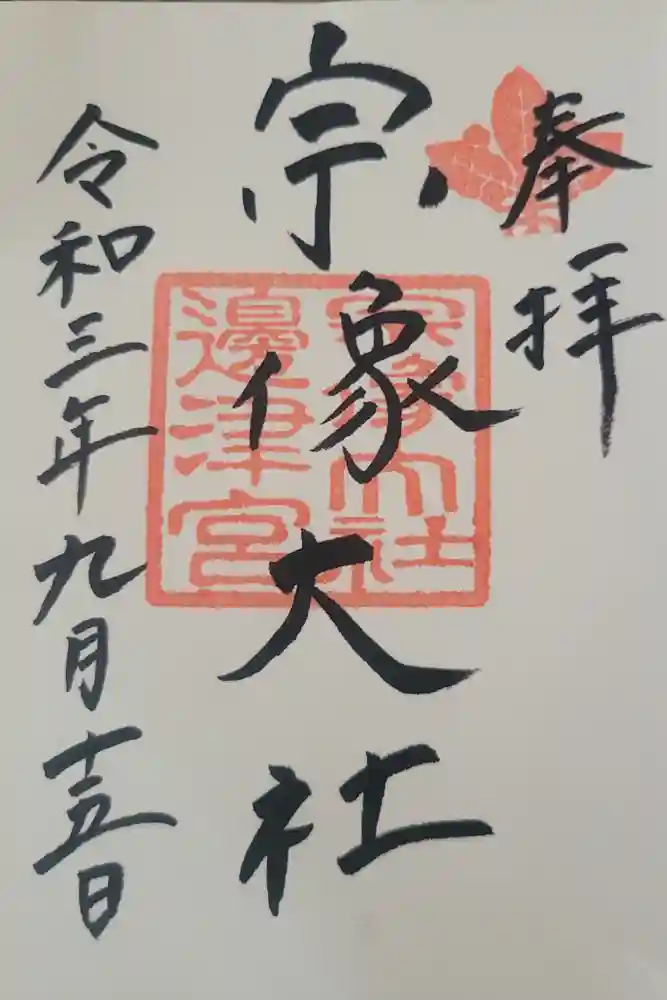 奉拝
宗像大社
宗像大社
邊津宮
令和三年九月十五日